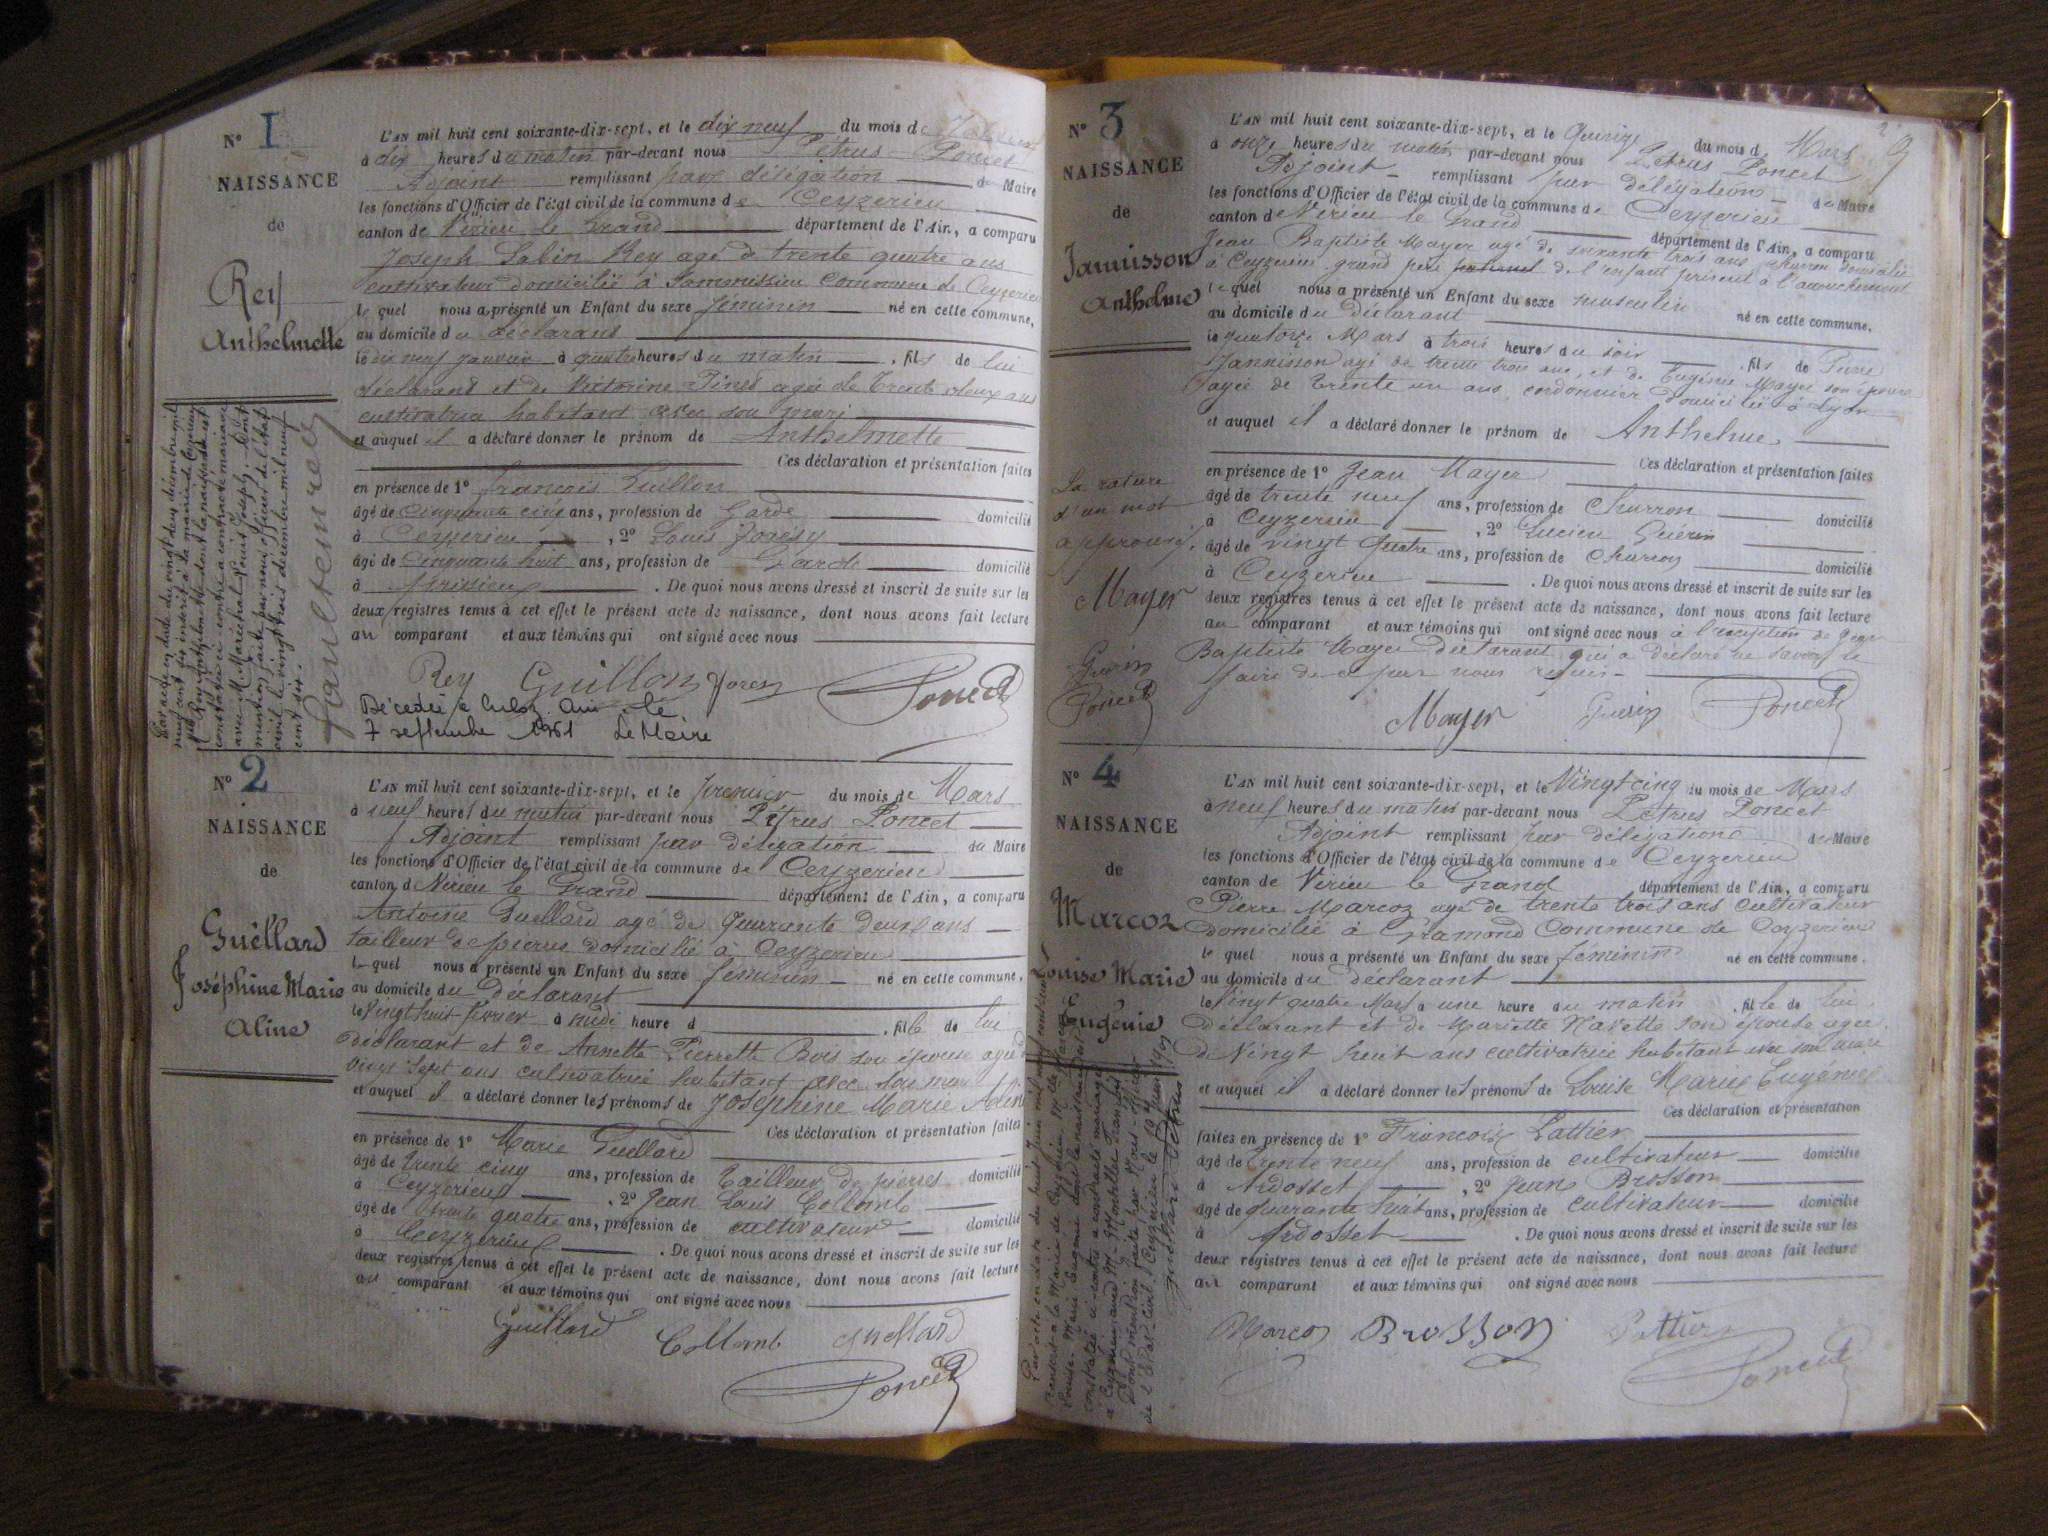 N° 1
NAISSANCE
de
Rey
Anthelmette
L'AN mil huit cent soixante-dix-sept, et le dix neuf du mois de Janvier
à dix heures du matin par-devant nous Pétrus Poncet
Adjoint remplissant par délégation du Maire
les fonctions d'Officier de l'état civil de la commune de Ceyzerieu
canton de Virieu le Grand département de l'Ain, a comparu
Joseph Sabin Rey agé de trente quatre ans
cultivateur domicilié à commune de Ceyzerieu
le quel nous a présenté un Enfant du sexe féminin né en cette commune,
au domicile du déclarant
le dix neuf janvier à quatre heures du matin, fils de lui
déclarant et de Victorine agée de trente deux ans
cultivatrice habitant avec son mari
et auquel il a déclaré donner le prénom de Anthelmette
Ces déclaration et présentation faites
en présence de 1° François Guillon
âgé de cinquante cinq ans, profession de Garde domicilié
à Ceyzerieu, 2° Louis
âgé de cinquante huit ans, profession de Garde domicilié
à. De quoi nous avons dressé et inscrit de suite sur les
deux registres tenus à cet effet le présent acte de naissance, dont nous avons fait lecture
au comparant et aux témoins qui ont signé avec nous
Rey Guillon Poncet
Décédée à Culoz Ain le
7 septembre 1961 Le Maire
N° 2
NAISSANCE
de
Guëllard
Joséphine Marie
Aline
L'AN mil huit cent soixante-dix-sept, et le premier du mois de Mars
à neuf heures du matin par-devant nous Pétrus Poncet
Adjoint remplissant par délégation du Maire
les fonctions d'Officier de l'état civil de la commune de Ceyzerieu
canton de Virieu le Grand département de l'Ain, a comparu
Antoine Guellard agé de quarante deux ans
tailleur de pierres domicilié à Ceyzerieu
le quel nous a présenté un Enfant du sexe féminin né en cette commune,
au domicile du déclarant
le Vingt huit février à midi heure d, fille de lui
déclarant et de Annette Pierrette Bois son épouse agée de
vingt sept ans cultivatrice habitant avec son mari
et auquel il a déclaré donner les prénoms de Joséphine Marie Aline
Ces déclaration et présentation faites
en présence de 1° Marie Guellard
âgé de trente cinq ans, profession de tailleur de pierres domicilié
à Ceyzerieu, 2° Jean Louis Collomb
âgé de trente quatre ans, profession de cultivateur domicilié
à Ceyzerieu. De quoi nous avons dressé et inscrit de suite sur les
deux registres tenus à cet effet le présent acte de naissance, dont nous avons fait lecture
au comparant et aux témoins qui ont signé avec nous
Guellard Collomb Guellard
Poncet
N° 3
NAISSANCE
de
Jannisson
Anthelme
L'AN mil huit cent soixante-dix-sept, et le Quinze du mois de Mars
à onze heures du matin par-devant nous Pétrus Poncet
Adjoint remplissant par délégation du Maire
les fonctions d'Officier de l'état civil de la commune de Ceyzerieu
canton de Virieu le Grand département de l'Ain, a comparu
Jean Baptiste Mayer agé de soixante trois ans charron domicilié
à Ceyzerieu grand père de l'enfant présent à l'accouchement
le quel nous a présenté un Enfant du sexe masculin né en cette commune,
au domicile du déclarant
le quatorze Mars à trois heures du soir, fils de Pierre
Jannisson agé de trente trois ans, et de Eugénie Mayer son épouse
agée de trente un ans, cordonnier domicilié à Lyon
et auquel il a déclaré donner le prénom de Anthelme
Ces déclaration et présentation faites
en présence de 1° Jean Mayer
âgé de trente neuf ans, profession de Charron domicilié
à Ceyzerieu, 2° Lucien Guérin
âgé de vingt quatre ans, profession de Charron domicilié
à Ceyzerieu. De quoi nous avons dressé et inscrit de suite sur les
deux registres tenus à cet effet le présent acte de naissance, dont nous avons fait lecture
au comparant et aux témoins qui ont signé avec nous à l'exception de Jean
Baptiste Mayer déclarant qui a déclaré ne savoir le
faire de ce par nous requis
Mayer Guérin Poncet
La rature
d'un mot
approuvé.
Mayer
Guérin
Poncet
N° 4
NAISSANCE
de
Marcoz
Louise Marie
Eugénie
L'AN mil huit cent soixante-dix-sept, et le Vingt cinq du mois de Mars
à neuf heures du matin par-devant nous Pétrus Poncet
Adjoint remplissant par délégation du Maire
les fonctions d'Officier de l'état civil de la commune de Ceyzerieu
canton de Virieu le Grand département de l'Ain, a comparu
Pierre Marcoz agé de trente trois ans cultivateur
domicilié à Chramond Commune de Ceyzerieu
le quel nous a présenté un Enfant du sexe féminin né en cette commune.
au domicile du déclarant
le Vingt quatre Mars à une heure du matin, fille de lui
déclarant et de Mariette Navette son épouse agée
de Vingt huit ans cultivatrice habitant avec son mari
et auquel il a déclaré donner les prénoms de Louise Marie Eugénie
Ces déclaration et présentation
faites en présence de 1° François Lathier
âgé de trente neuf ans, profession de cultivateur domicilié
à Ardosset, 2° Jean Brosson
âgé de quarante huit ans, profession de cultivateur domicilié
à Ardosset. De quoi nous avons dressé et inscrit de suite sur les
deux registres tenus à cet effet le présent acte de naissance, dont nous avons fait lecture
au comparant et aux témoins qui ont signé avec nous
Marcoz Brosson
Poncet